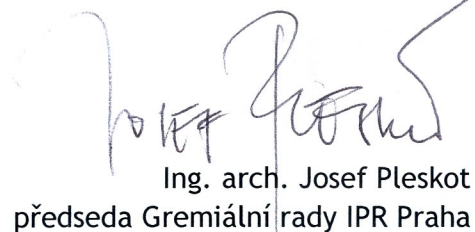 Josef Pleskot
Ing. arch. Josef Pleskot
předseda Gremiální rady IPR Praha